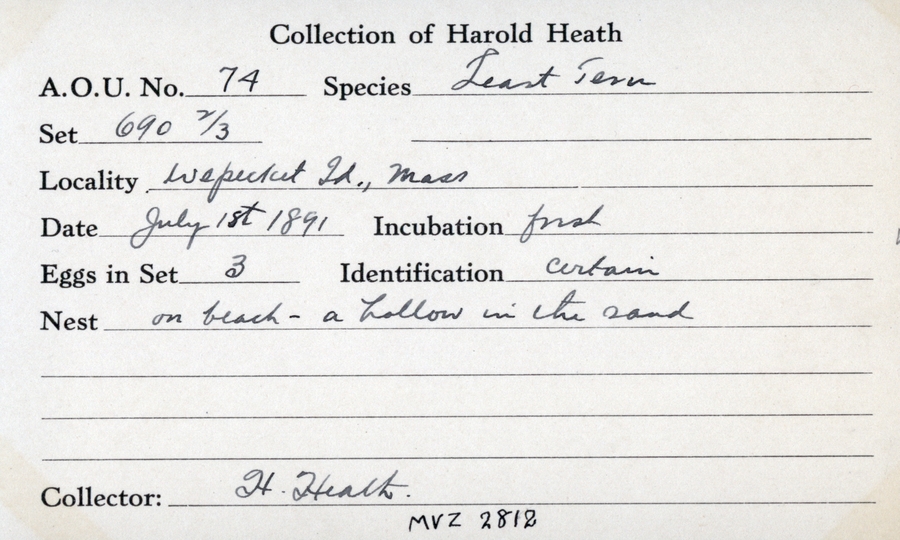 Collection of Harold Heath
A.O.U. No. 74 Species Least Tern
Set 690 2/3
Locality Wepecket Id., Mass
Date July 1st 1891 Incubation fresh
Eggs in Set 3 Identification certain
Nest on beach - a hollow in the sand
Collector: H. Heath.
MVZ 2812